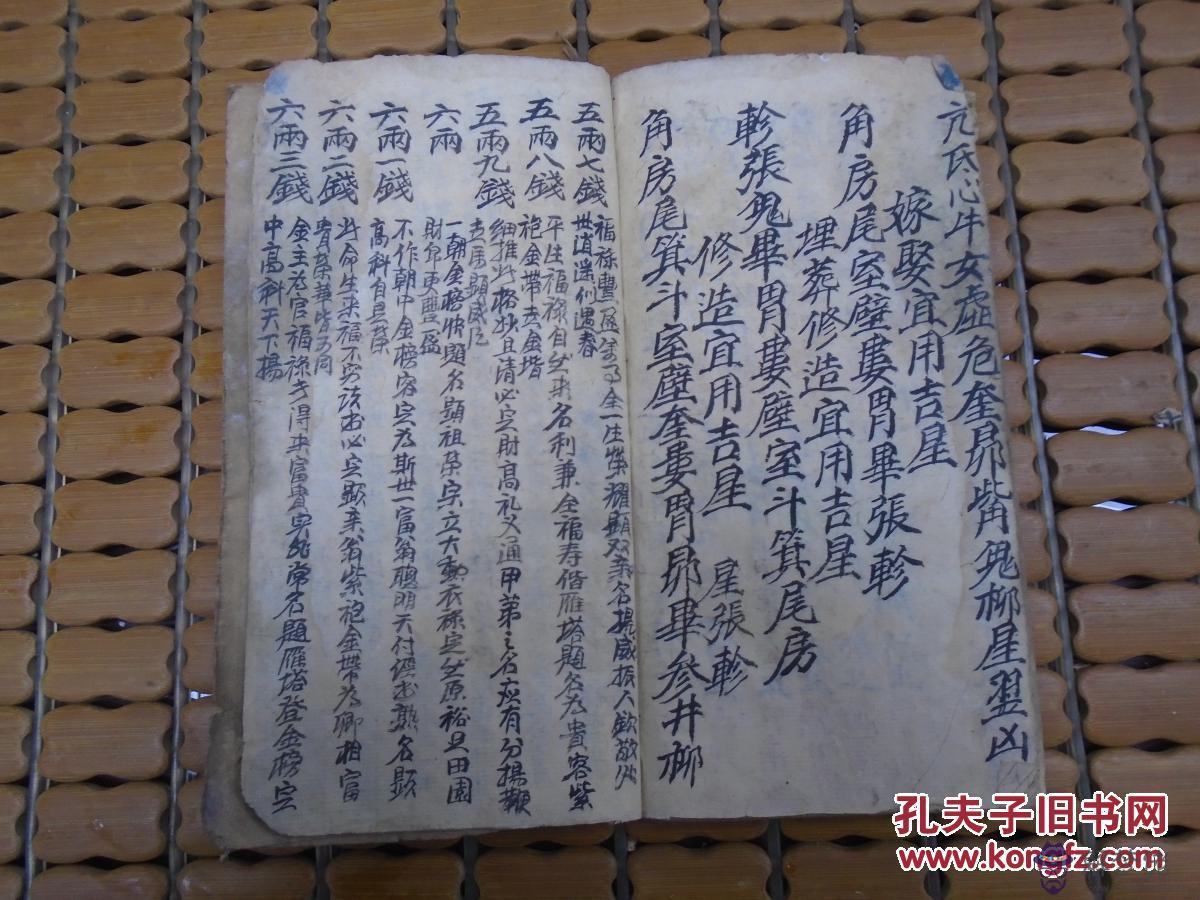 亢氐心牛女虚危奎昴觜鬼柳星翌凶
嫁娶宜用吉星
角房尾室壁婁胃畢張軫
埋葬修造宜用吉星
軫張鬼畢胃婁壁室斗箕尾房
修造宜用吉星
角房尾箕斗室壁奎婁胃昴畢参井柳
星張軫
五兩七錢
福禄豐盈萬事全一生榮耀顯双親名揚威振人欽敬處
世逍遥似遇春
五兩八錢
平生福禄自然来名利兼全福寿偕雁塔題名為貴客紫
袍金帶走金堦
五兩九錢
細推此格妙且清必定財高礼义通甲第之名应有分揚鞭
走馬顯威
六兩
一朝金榜快題名顯祖荣宗立大勳衣禄定然原裕足田園
財帛更豐盈
六兩一錢
不作朝中金榜客定為斯世一富翁聰明天付經书熟名顯
高科自是荣
六兩二錢
此命生来福不穷读书必定顯亲翁紫袍金帶為卿相富
貴荣華皆可同
六兩三錢
金主为官福禄
得来富貴
非常名題雁塔登金榜定
中高科天下揚
孔夫子旧书网
www.kongfz.com